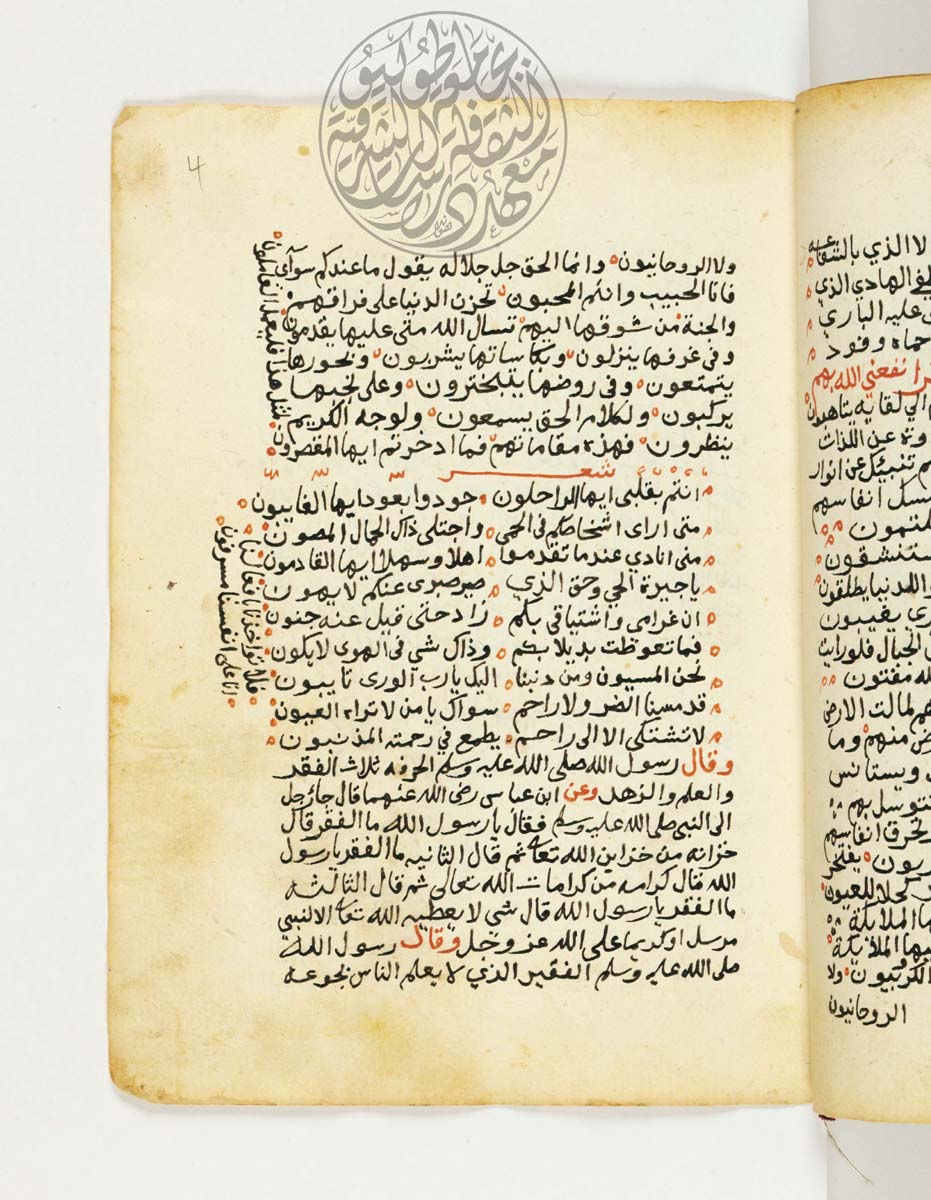 معهد دراسات الثقافة الشرقية بجامعة طوكيو
4
ولا الروحانيون وانما الحق جل جلاله يقول ما عندكم سوآي
فانا الحبيب وانتم المحبون تحزن الدنيا على فراقهم
والجنة من شوقها اليهم تسال الله متى عليها يقدمون
وفي غرفها ينزلون وبكاساتها يشربون وبحورها
يتمتعون وفي روضها يتبخترون وعلى نجبها
يركبون ولكلام الحق يسمعون ولوجه الكريم
ينظرون فهذه مقاماتهم فما ادخرتم ايها المقصرون
لمثل هذا فليعمل العاملون
شعر
انتم بقلبي ايها الراحلون جودوا بعود ايها الغايبون
متى ارى اشخاصكم في الحمى واجتلى ذاك الجمال المصون
متى انادي عندما تقدموا اهلا وسهلا ايها القادمون
ياجيرة الحي وحق الذي صير صبرى عنكم لا يهون
ان غرامى واشتياقى بكم زاد حتى قيل عنه جنون
فما تعوظت بديلا بكم وذاك شي في الهوى لا يكون
نحن المسيون ومن ذنبنا اليك يارب الورى تايبون
قد مسنا الضر ولا راحم سواك يا من لا تراه العيون
لا تشتكى الا الى راحم يطمع في رحمته المذنبون
فلا تواخذنا بافعالنا
انا على انفسنا مسرفون
وقال رسول الله صلى الله عليه وسلم الحرفه ثلاث الفقر
والعلم والزهد وعن ابن عباس رضى الله عنهما قال جا رجل
الى النبي صلى الله عليه وسلم فقال يا رسول الله ما الفقر قال
خزانه من خزاين الله تعالى ثم قال الثانيه ما الفقر يا رسول
الله قال كرامه من كرامات الله تعالى ثم قال الثالثه
ما الفقر يا رسول الله قال شي لا يعطيه الله تعالى الا لنبي
مرسل او كريما على الله عز وجل وقال رسول الله
صلى الله عليه وسلم الفقير الذي لا يعلم الناس بجوعه
لا الذي بالشفاعه
الهادي الذي
عليه الباري
حماه وفود
نفعني الله بهم
الي لقايه يتاهبون
عن اللذات
تنبيك عن انوار
انفاسهم
يستنشقون
الدنيا يطلقون
يغيبون
الجبال فلو رايت
مفتون
لمالت الارض
منهم وما
ويستانس
نتوسل بهم
تحرق انفاسهم
يفتخر
كحلا للعيون
الملايكة
الملايكة
الكروبيون ولا
الروحانيون